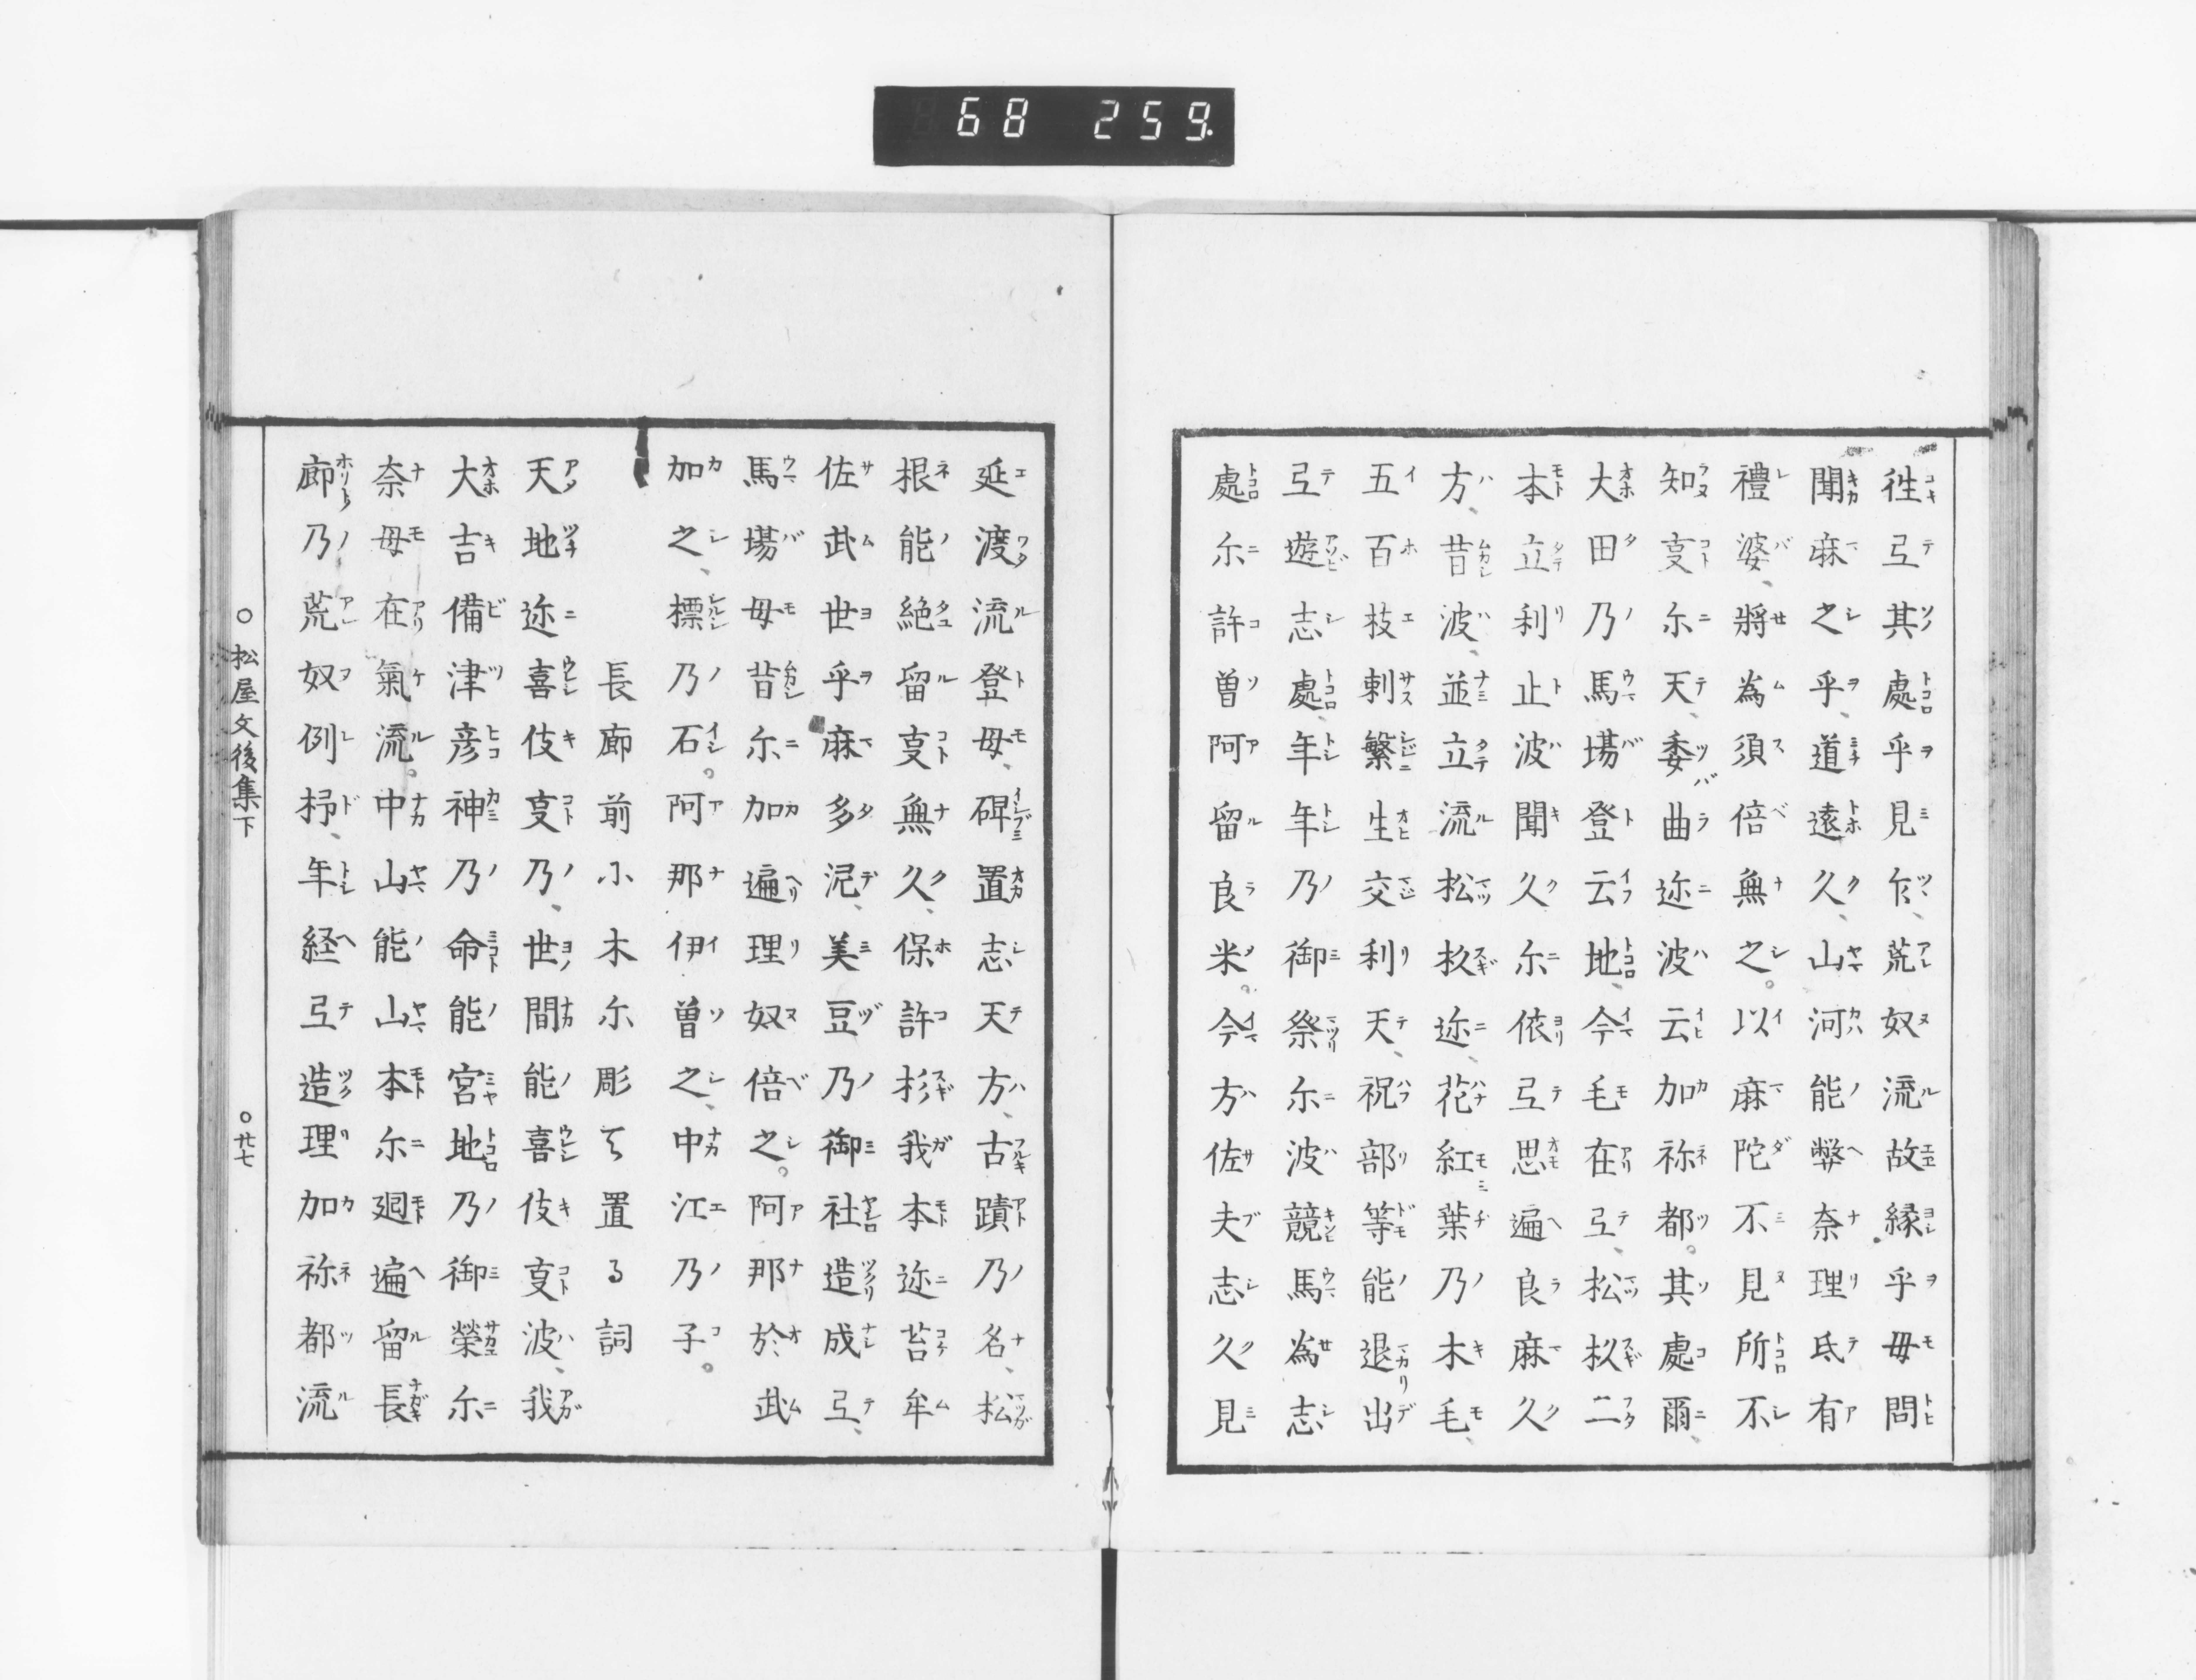 68 259
徃弖其處乎見乍、荒奴流故縁乎毋問
聞麻之乎、道遠久、山河能弊奈理氐有
禮婆、將為須倍無之。以麻陀不見所不
知㕝尓天、委曲迩波云加祢都。其處爾、
大田乃馬塲登云地、今毛在弖、松杦二
本立利止波聞久尓依弖思遍良麻久
方、昔波、並立流松杦迩、花紅葉乃木毛、
五百枝刺繁生交利天、祝部等能退出
弖遊志處、年年乃御祭尓波競馬為志
處尓許曽阿留良米。今方佐夫志久見
延渡流登毋、碑置志天方、古蹟乃名、松
根能絶留㕝無久、保許杉我本迩苔牟
佐武世乎麻多泥、美豆乃御社造成弖、
馬塲毋昔尓加遍理奴倍之。阿那於武
加之、標乃石。阿那伊曽之、中江乃子。
長廊前小木尓彫て置る詞
天地迩喜伎㕝乃、世間能喜伎㕝波、我
大吉備津彦神乃命能宮地乃御榮尓
奈毋在氣流。中山能山本尓廻遍留長
廊乃荒奴例抒、年経弖造理加祢都流
○松屋文後集下 ○廿七